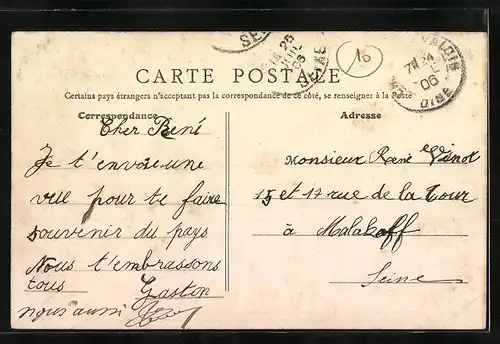 10
SEINE
25
06
SEINE
7
24
06
OISE
CARTE POSTALE
Certains pays étrangers n'acceptant pas la correspondance de ce côté, se renseigner à la Poste
Correspondance
Adresse
Cher René
Je t'envoie une
vue pour te faire
souvenir du pays
Nous t'embrassons
tous Gaston
nous aussi
Monsieur René Vinot
15 et 17 rue de la Tour
à Malakoff
Seine